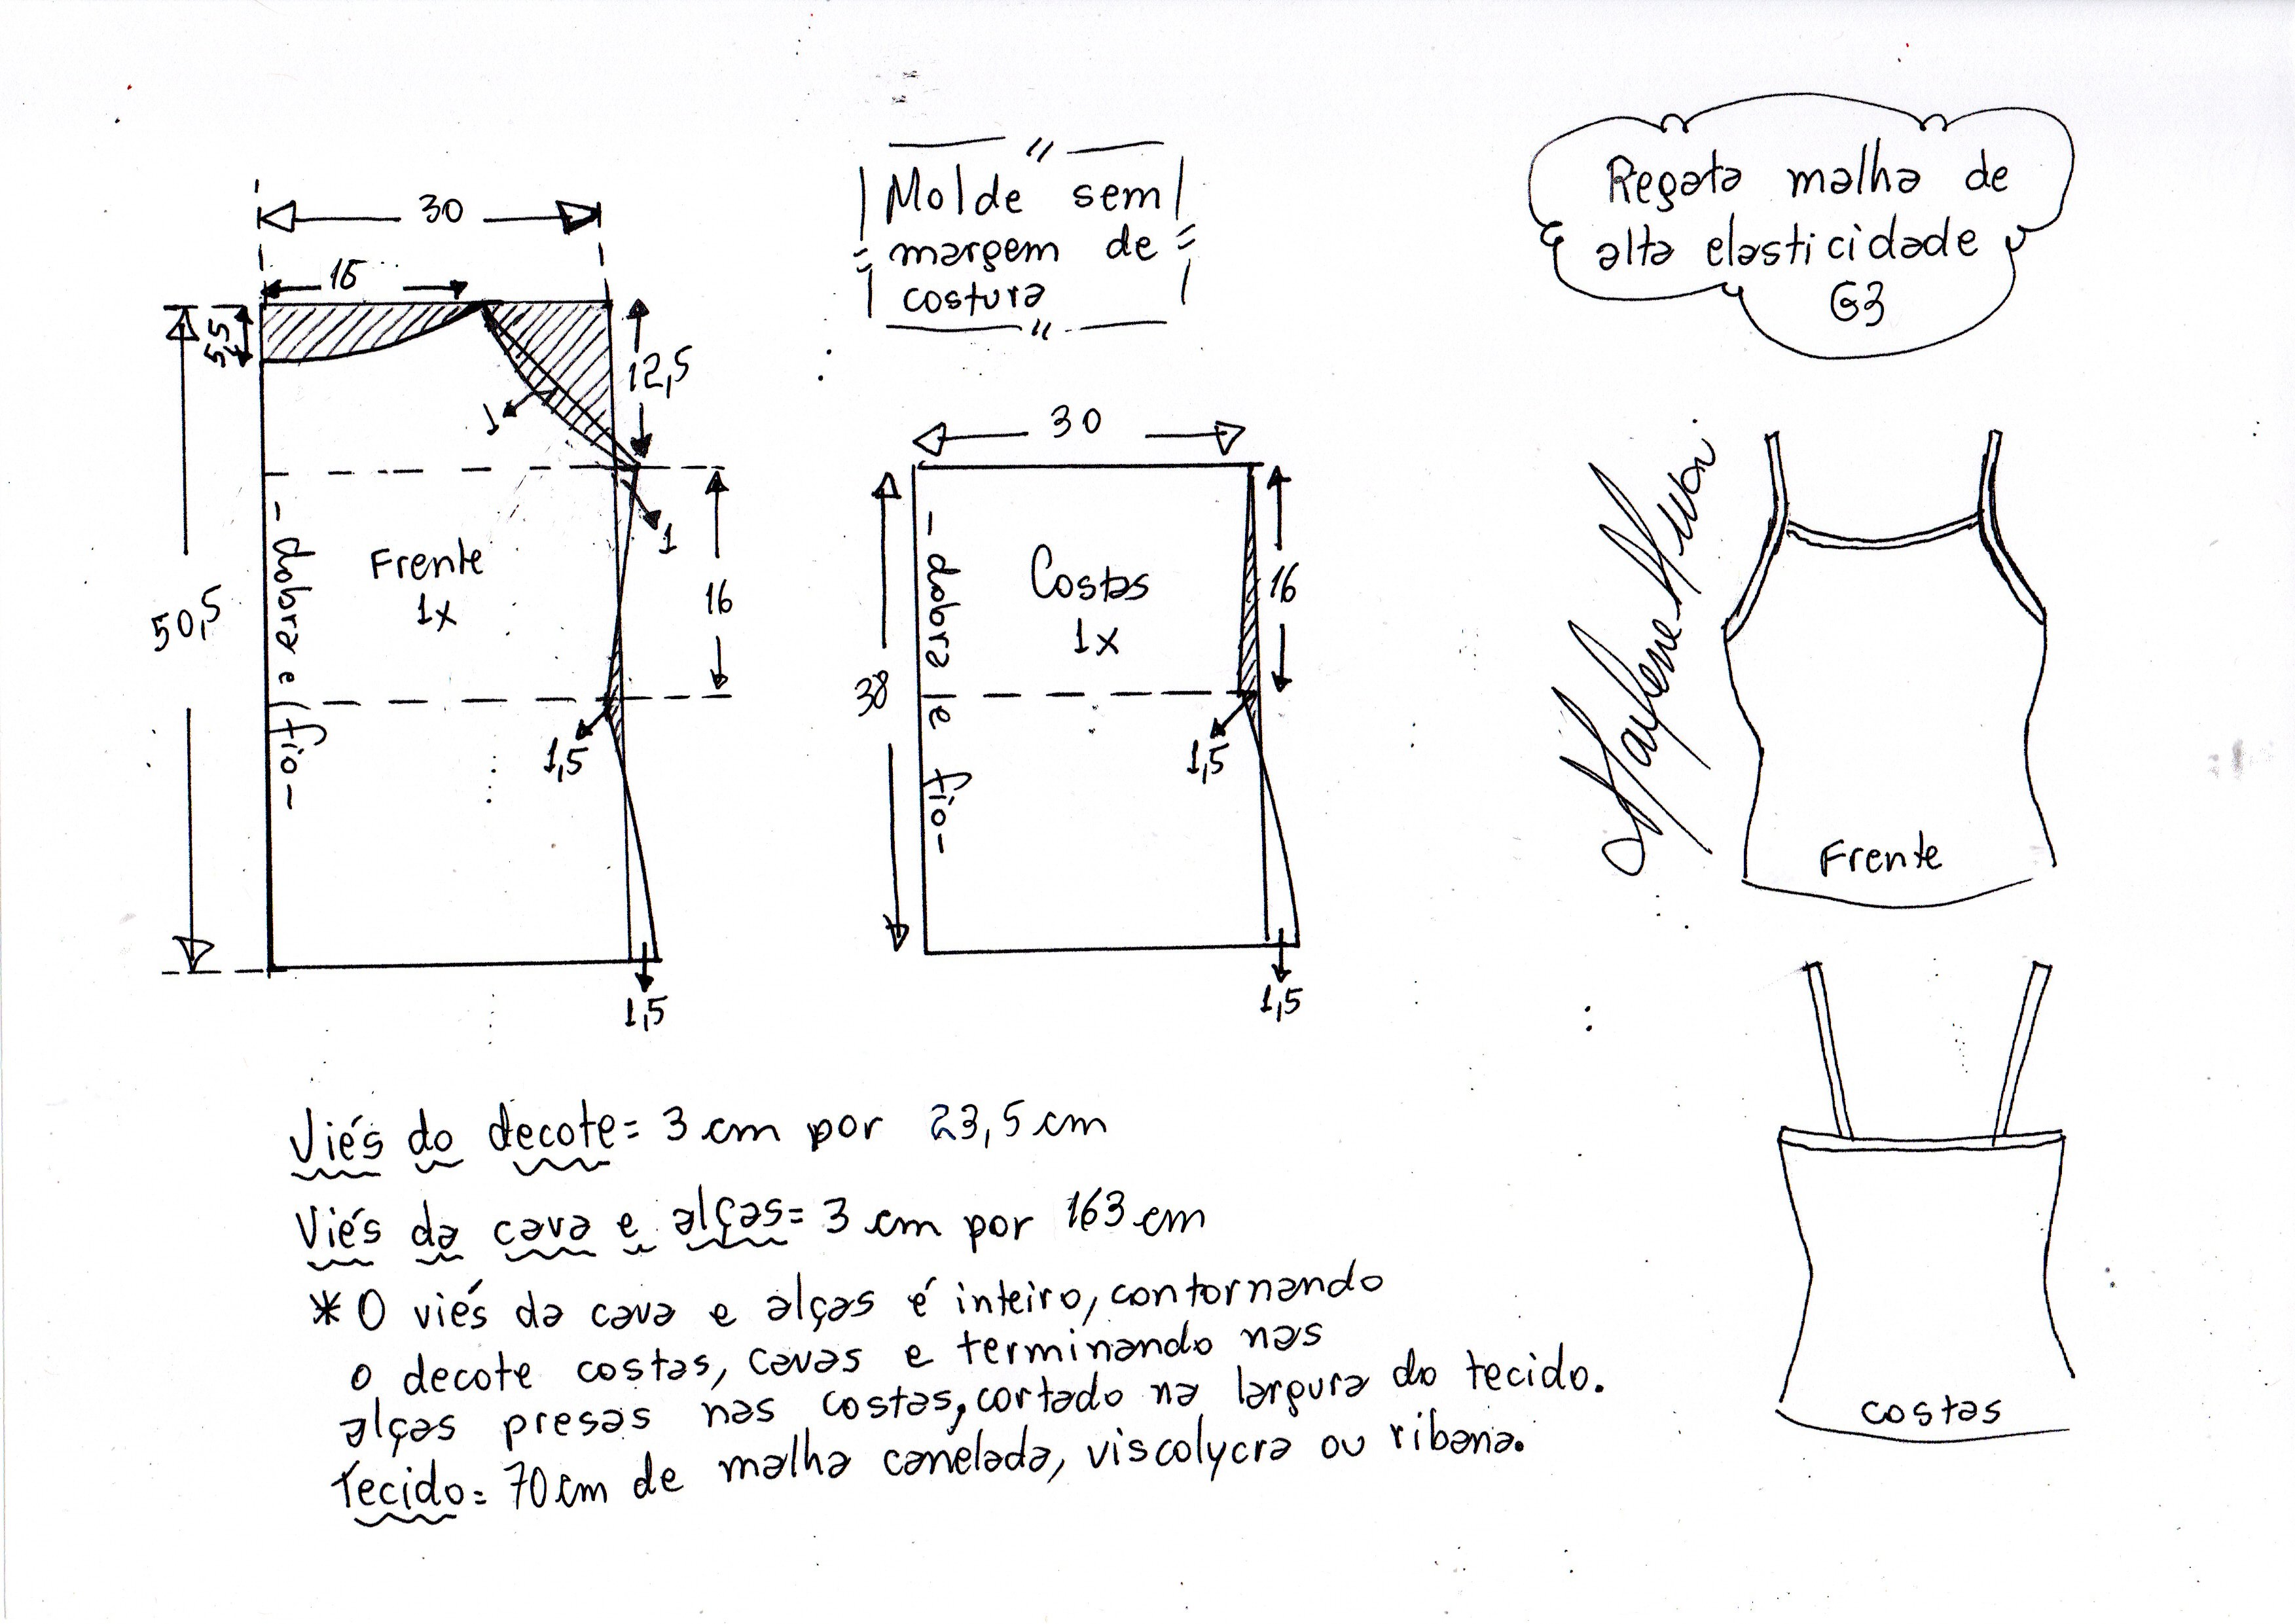 30
15
5,5
12,5
1
1
16
50,5
- dobra e fio -
Frente
1x
1,5
1,5
Molde sem
margem de
costura
30
38
- dobra e fio -
Costas
1x
16
1,5
1,5
Regata malha de
alta elasticidade
G3
Frente
costas
Viés do decote= 3 cm por 23,5 cm
Viés da cava e alças= 3 cm por 163 cm
* O viés da cava e alças é inteiro, contornando
o decote costas, cavas e terminando nas
alças presas nas costas, cortado na largura do tecido.
Tecido= 70 cm de malha canelada, viscolycra ou ribana.